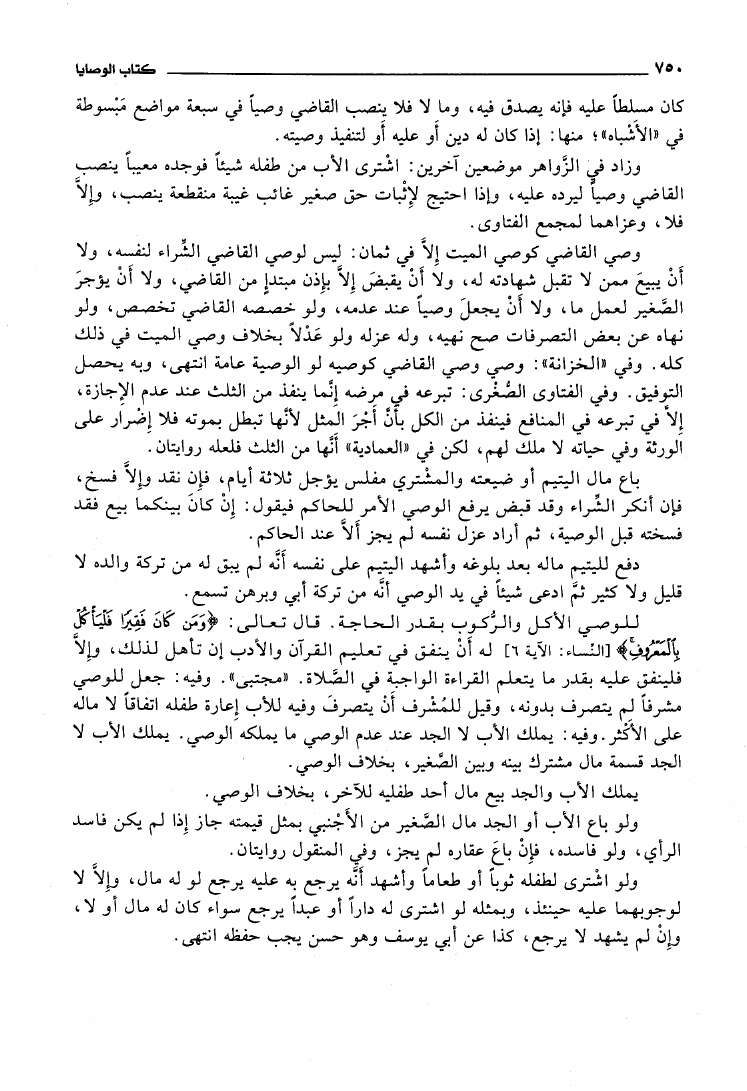 ٧٥٠ كتاب الوصايا
كان مسلطاً عليه فإنه يصدق فيه، وما لا فلا ينصب القاضي وصياً في سبعة مواضع مَبْسوطة
في «الأَشْباه»؛ منها: إذا كان له دين أو عليه أو لتنفيذ وصيته.
وزاد في الزَّواهر موضعين آخرين: اشْترى الأب من طفله شيئاً فوجده معيباً ينصب
القاضي وصياً ليرده عليه، وإذا احتيج لإثبات حق صغير غائب غيبة منقطعة ينصب، وإلاَّ
فلا، وعزاهما لمجمع الفتاوى.
وصي القاضي كوصي الميت إلاَّ في ثمان: ليس لوصي القاضي الشِّراء لنفسه، ولا
أَنْ يبيعَ ممن لا تقبل شهادته له، ولا أَنْ يقبضَ إلاَّ بإذن مبتدإ من القاضي، ولا أَنْ يؤجرَ
الصَّغير لعمل ما، ولا أَنْ يجعلَ وصياً عند عدمه، ولو خصصه القاضي تخصص، ولو
نهاه عن بعض التصرفات صح نهيه، وله عزله ولو عَدْلاً بخلاف وصي الميت في ذلك
كله. وفي «الخزانة»: وصي وصي القاضي كوصيه لو الوصية عامة انتهى، وبه يحصل
التوفيق. وفي الفتاوى الصُّغْرى: تبرعه في مرضه إِنَّما ينفذ من الثلث عند عدم الإجازة،
إلاَّ في تبرعه في المنافع فينفذ من الكل بأَنَّ أَجْرَ المثل لأنَّها تبطل بموته فلا إضْرار على
الورثة وفي حياته لا ملك لهم، لكن في «العمادية» أنَّها من الثلث فلعله روايتان.
باع مال اليتيم أو ضيعته والمشْتري مفلس يؤجل ثلاثة أيام، فإن نقد وإلاَّ فسخ،
فإن أنكر الشِّراء وقد قبض يرفع الوصي الأمر للحاكم فيقول: إنْ كانَ بينكما بيع فقد
فسخته قبل الوصية، ثم أراد عزل نفسه لم يجز ألاَّ عند الحاكم.
دفع لليتيم ماله بعد بلوغه وأشهد اليتيم على نفسه أنَّه لم يبق له من تركة والده لا
قليل ولا كثير ثمَّ ادعى شيئاً في يد الوصي أنَّه من تركة أبي وبرهن تسمع.
للوصي الأكل والرُّكوب بقدر الحاجة. قال تعالى: ﴿وَمَن كَانَ فَقِيرًا فَلْيَأْكُلْ
بِالْمَعْرُوفِ﴾ [النِّساء: الآية ٦] له أَنْ ينفق في تعليم القرآن والأدب إن تأهل لذلك، وإلاَّ
فلينفق عليه بقدر ما يتعلم القراءة الواجبة في الصَّلاة. «مجتبى». وفيه: جعل للوصي
مشرفاً لم يتصرف بدونه، وقيل للمُشْرف أَنْ يتصرفَ وفيه للأب إعارة طفله اتفاقاً لا ماله
على الأَكْثر. وفيه: يملك الأب لا الجد عند عدم الوصي ما يملكه الوصي. يملك الأب لا
الجد قسمة مال مشترك بينه وبين الصَّغير، بخلاف الوصي.
يملك الأب والجد بيع مال أحد طفليه للآخر، بخلاف الوصي.
ولو باع الأب أو الجد مال الصَّغير من الأَجْنبي بمثل قيمته جاز إذا لم يكن فاسد
الرأي، ولو فاسده، فإنْ باعَ عقاره لم يجز، وفي المنقول روايتان.
ولو اشْترى لطفله ثوباً أو طعاماً وأشهد أنَّه يرجع به عليه يرجع لو له مال، وإلاَّ لا
لوجوبهما عليه حينئذ، وبمثله لو اشترى له داراً أو عبداً يرجع سواء كان له مال أو لا،
وإنْ لم يشهد لا يرجع، كذا عن أبي يوسف وهو حسن يجب حفظه انتهى.